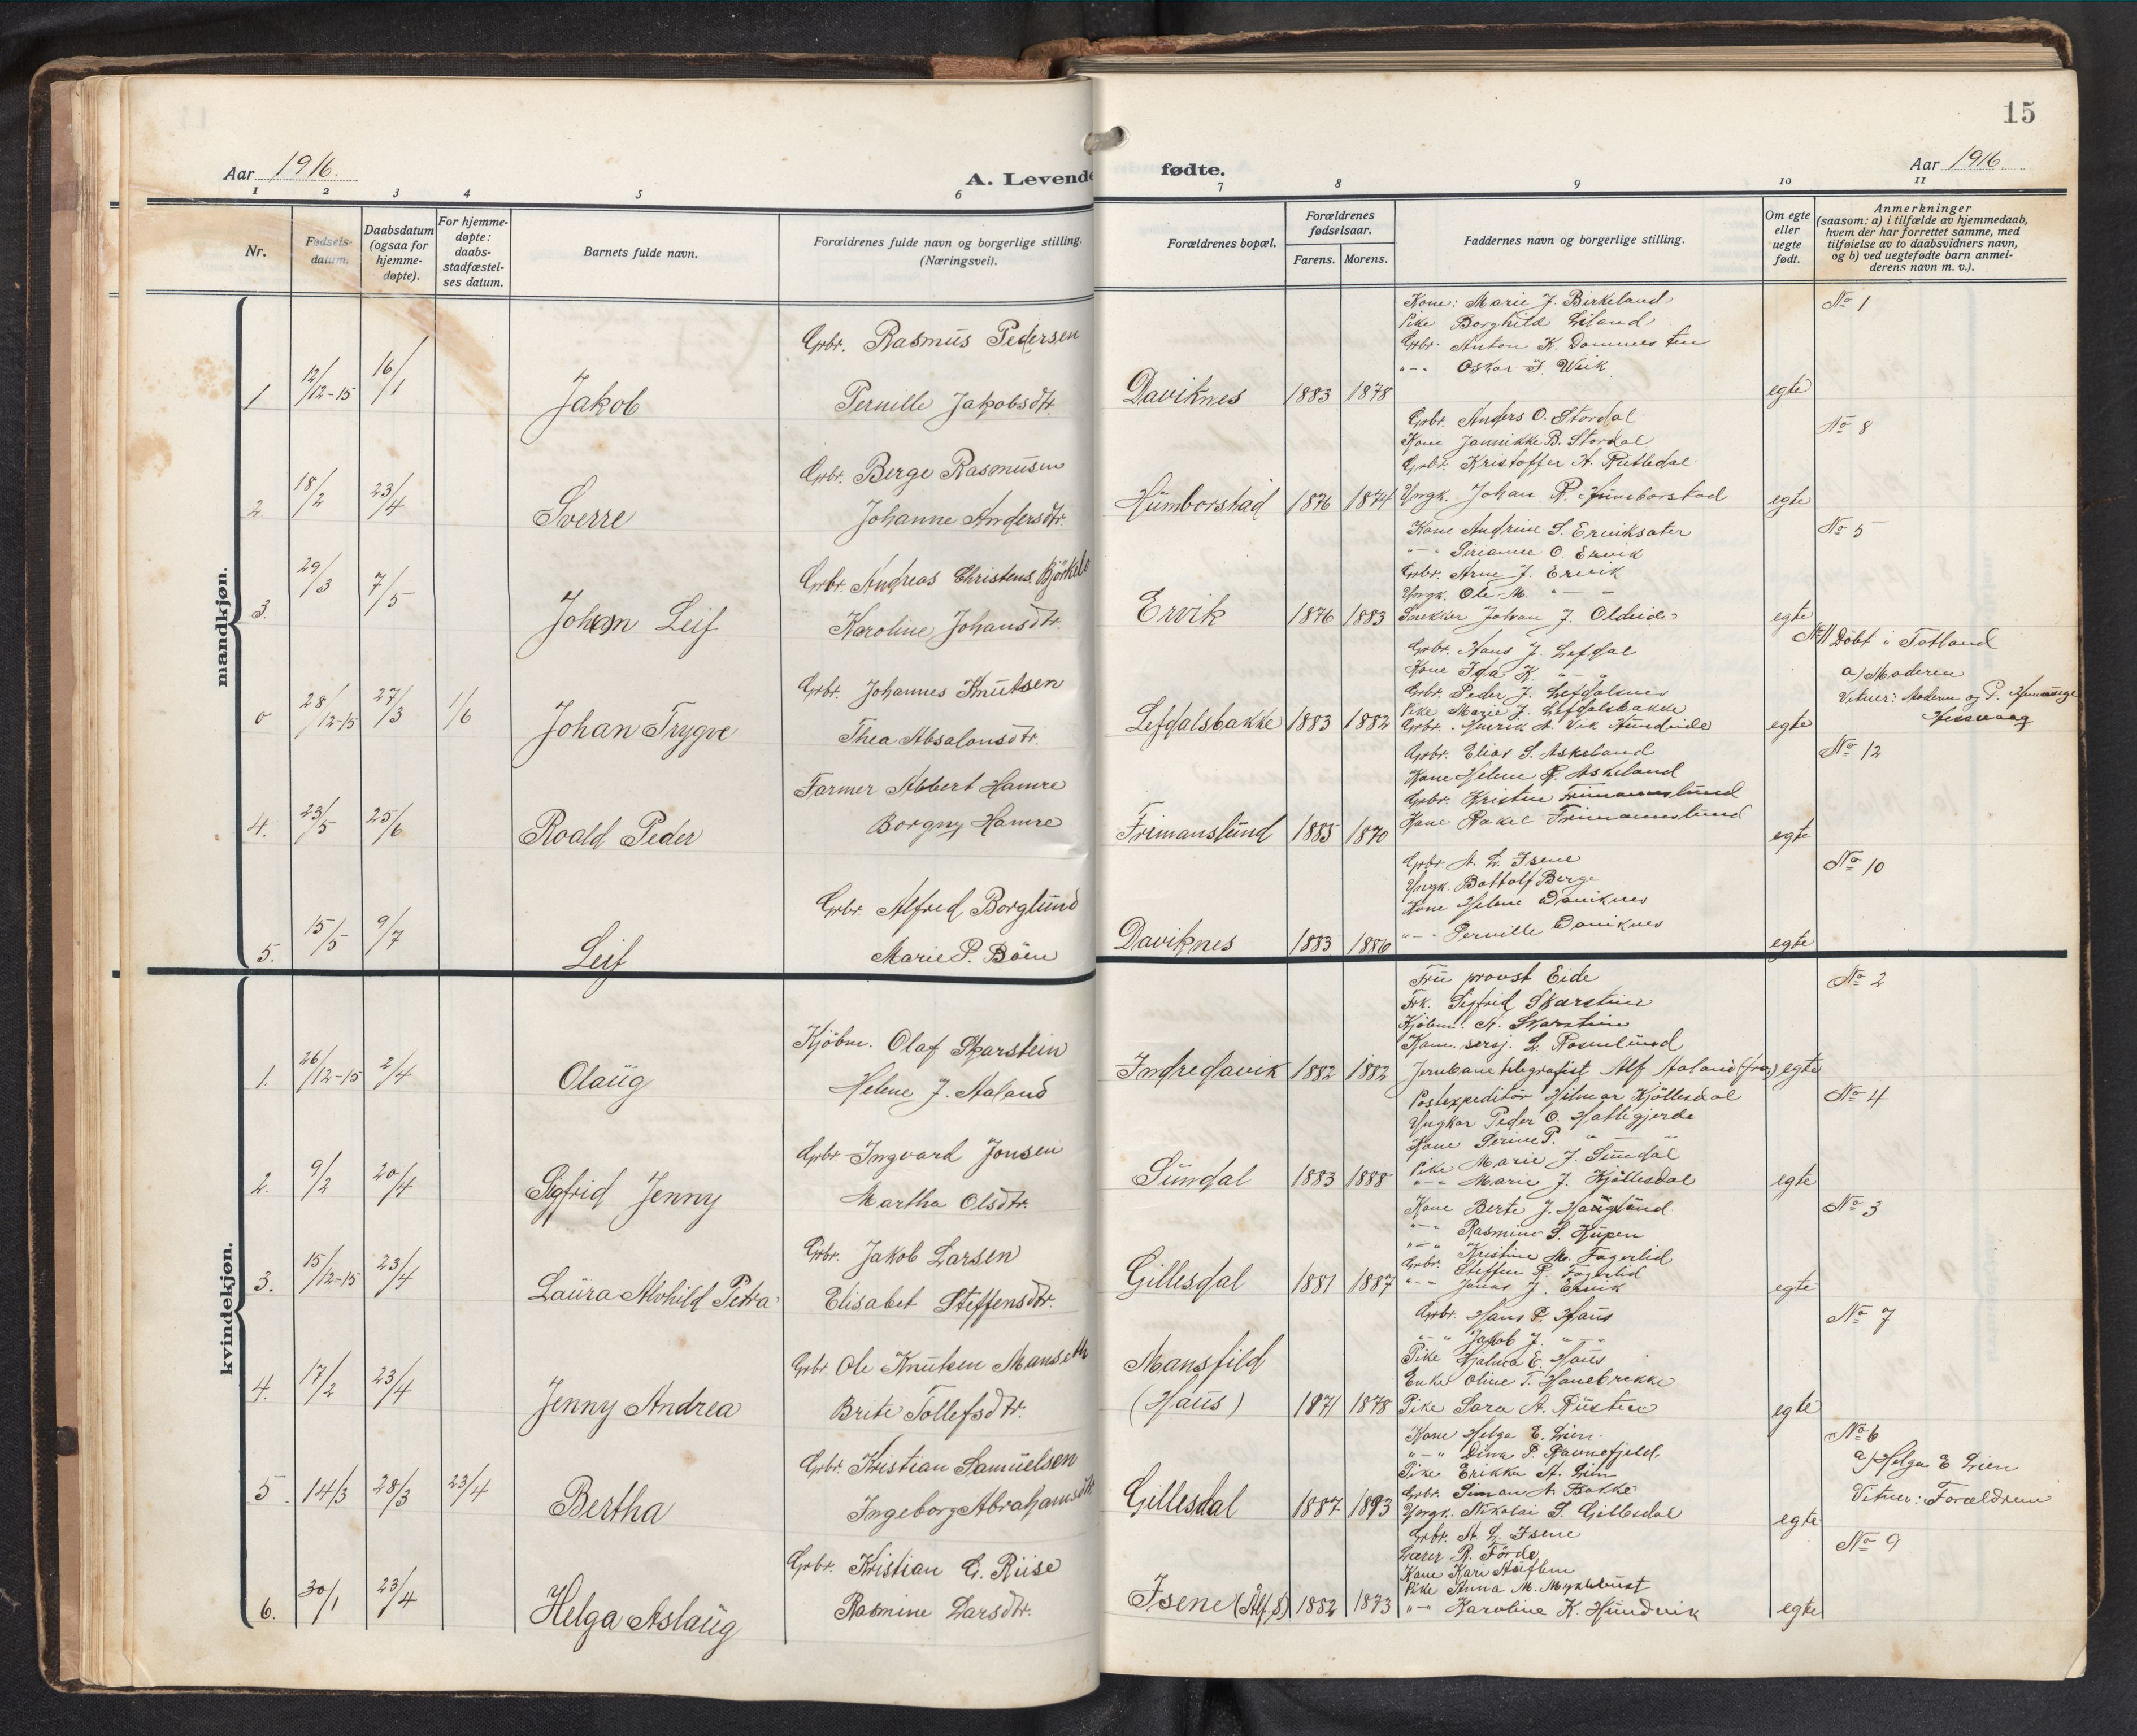 15
Aar 1916.
A. Levende fødte.
Aar 1916.
1 2 3 4 5 6 7 8 9 10 11
Nr.
Fødsels-
datum.
Daabsdatum
(ogsaa for
hjemme-
døpte).
For hjemme-
døpte:
daabs-
stadfæstel-
ses datum.
Barnets fulde navn.
Forældrenes fulde navn og borgerlige stilling.
(Næringsvei).
Forældrenes bopæl.
Forældrenes
fødselsaar.
Farens. Morens.
Faddernes navn og borgerlige stilling.
Om egte
eller
uegte
født.
Anmerkninger
(saasom: a) i tilfælde av hjemmedaab,
hvem der har forrettet samme, med
tilføielse av to daabsvidners navn,
og b) ved uegtefødte barn anmel-
derens navn m. v.).
mandkjøn.
1 12/12-15 16/1 Jakob
Grbr. Rasmus Pedersen
Pernille Jakobsdtr
Daviknes 1883 1878
Kone: Marie J. Birkeland
Pike Borghild Liland
Grbr. Anton K. Dommesten
"-" Oskar J. Wiik
egte
No 1
2 18/2 23/4 Sverre
Grbr. Berge Rasmusen
Johanne Andersdtr
Humborstad 1876 1874
Grbr. Anders O. Stordal
Kone Jannikke B. Stordal
Grbr. Kristoffer A. Rutledal
Yngk. Johan R. Humborstad
egte
No 8
3. 29/3 7/5 Johan Leif
Grbr. Andreas Christens. Björkelo
Karoline Johansdtr.
Ervik 1876 1883
Kone Andrine S. Erviksæter
"-" Sirianne O. Ervik
Grbr. Arne J. Ervik
Yngk. Ole M. "-"
Snekker Johan J. Oldeide
egte
No 5
0 28/12-15 27/3 1/6 Johan Trygve
Grbr. Johannes Knutsen
Thea Absalonsdtr.
Lefdalsbakke 1883 1882
Grbr. Hans J. Lefdal
Kone Ida K. "-"
Grbr. Peder J. Lefdalsnes
Pike Marie J. Lefdalsbakke
Grbr. Henrik A. Vik Hundeide
egte
No 11 Döbt i Totland
a) Moderen
Vitner: Moderen og P.
4. 23/5 25/6 Roald Peder
Farmer Albert Hamre
Borgny Hamre
Frimanslund 1885 1870
Grbr. Elias S. Askeland
Kone Helene R. Askeland
Grbr. Kristen Frimannslund
Kone Rakel Frimannslund
egte
No 12
5. 15/5 9/7 Leif
Grbr. Alfred Borglund
Marie P. Böen
Daviknes 1883 1886
Grbr. A. L. Isene
Yngk. Bottolf Berge
Kone Helene Daviknes
"-" Pernille Daviknes
egte
No 10
kvindekjøn.
1. 26/12-15 2/4 Olaug
Kjöbm. Olaf Skarstein
Helene J. Aaland
Indredavik 1882 1882
Fru provst Eide
Frk. Sigfrid Skarstein
Kjöbm. A. Skarstein
Kom. sersj. L. Rosenlund
Jernbanetelegrafist Alf Aaland (frav)
egte
No 2
2. 9/2 20/4 Sigfrid Jenny
Grbr. Ingvard Jonsen
Martha Olsdtr.
Sundal 1883 1888
Postexpeditör Hilmar Kjöllesdal
Ungkar Peder O. Hattegjerde
Kone Serine P. "-"
Pike Marie J. Sundal
"-" Marie J. Kjöllesdal
egte
No 4
3. 15/12-15 23/4 Laura Alvhild Petra
Grbr. Jakob Larsen
Elisabet Steffensdtr.
Gillesdal 1881 1887
Kone Berte J. Haugland
"-" Rasmine S. Kupen
"-" Kristine M. Fagerlid
Grbr. Steffen R. Fagerlid
"-" Jonas J. Ervik
egte
No 3
4. 17/2 23/4 Jenny Andrea
Grbr. Ole Knutsen Manseth
Brite Tollefsdtr.
Mansfild
(Haus) 1871 1878
Grbr. Hans P. Haus
"-" Jakob J. "-"
Pike Hjalma E. Haus
Enke Oline T. Hanebrekke
Pike Sara A. Rusten
egte
No 7
5. 14/3 28/3 23/4 Bertha
Grbr. Kristian Samuelsen
Ingeborg Abrahamsdtr
Gillesdal 1887 1893
Kone Helga E. Lien
"-" Dina P. Ravnefjeld
Pike Erikka A. Lien
Grbr. Simon A. Bakke
Yngk. Nikolai S. Gillesdal
egte
No 6
a) Helga E Lien
Vitner: Forældrene
6. 30/1 23/4 Helga Aslaug
Grbr. Kristian G. Riise
Rasmine Larsdtr.
Isene (Ålf. S) 1882 1873
Grbr. A. L. Isene
Lærer R. Förde
Kone Kari
Pike Anna M. Myklebust
"-" Karoline K. Hundvik
egte
No 9